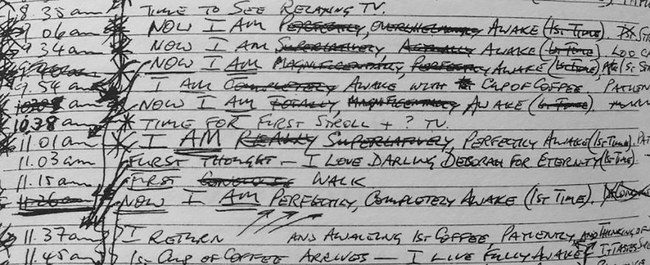 8.35am TIME TO SEE RELAXING TV.
9.06am NOW I AM PERFECTLY, OVERWHELMINGLY AWAKE (1ST TIME).
9.34am NOW I AM SUPERLATIVELY ACTUALLY AWAKE (1ST TIME).
NOW I AM MAGNIFICENTLY, PERFECTLY AWAKE (1ST TIME)
9.54am I AM COMPLETELY AWAKE WITH CUP OF COFFEE. PATIENT
NOW I AM TOTALLY MAGNIFICENTLY AWAKE (1ST TIME)
10.38am TIME FOR FIRST STROLL + ? TV.
11.01am I AM REALLY SUPERLATIVELY, PERFECTLY AWAKE (1ST TIME).
11.03am FIRST THOUGHT – I LOVE DARLING DEBORAH FOR ETERNITY (1ST TIME).
11.15am FIRST CONSCIOUS WALK
11.26am NOW I AM PERFECTLY, COMPLETELY AWAKE (1ST TIME).
11.37am I RETURN AND AWAITING 1ST COFFEE, PATIENTLY, AND THINKING OF
11.45am 1ST CUP OF COFFEE ARRIVES – I LIVE FULLY AWAKE